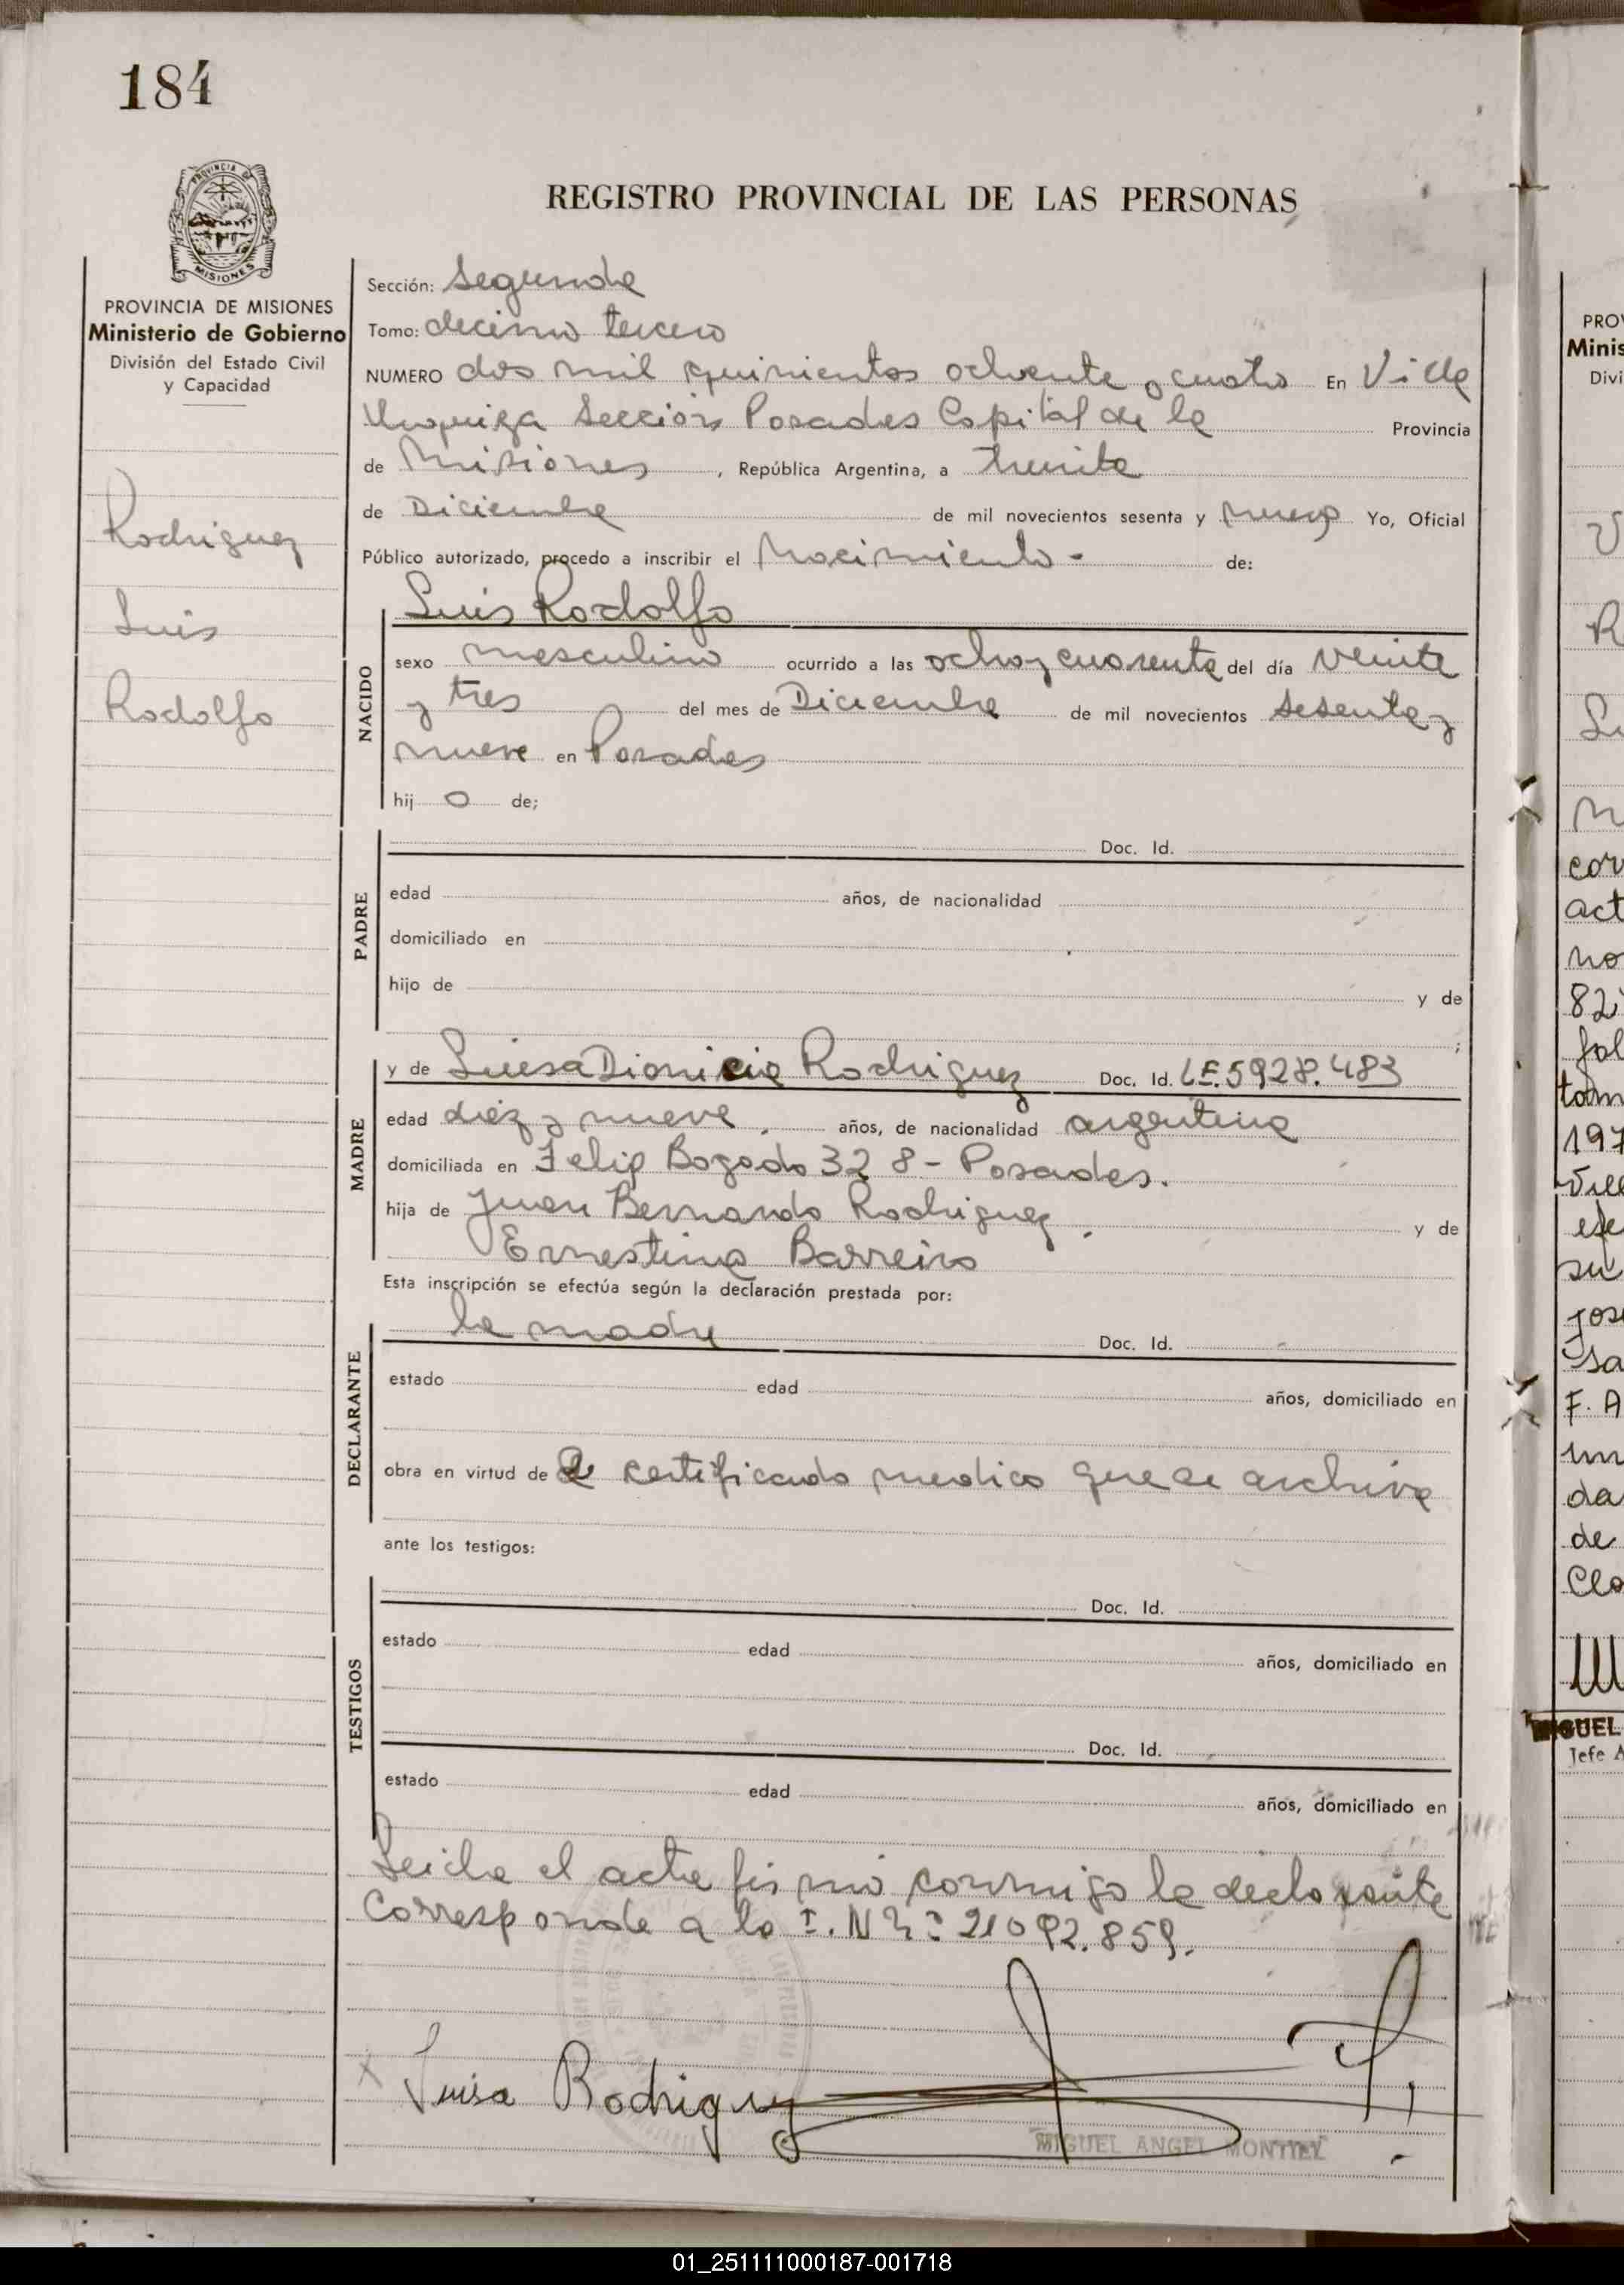 184
REGISTRO PROVINCIAL DE LAS PERSONAS
PROVINCIA DE
MISIONES
PROVINCIA DE MISIONES
Ministerio de Gobierno
División del Estado Civil
y Capacidad
Rodriguez
Luis
Rodolfo
Sección: Segunda
Tomo: decimo tercero
NUMERO dos mil quinientos ochenta y cuatro En Villa
Urquiza Sección Posadas Capital de la Provincia
de Misiones, República Argentina, a treinta
de Diciembre de mil novecientos sesenta y nueve Yo, Oficial
Público autorizado, procedo a inscribir el Nacimiento - de:
Luis Rodolfo
NACIDO
sexo masculino ocurrido a las ocho y cuarenta del día veinte
y tres del mes de Diciembre de mil novecientos sesenta y
nueve en Posadas
hij o de;
PADRE
Doc. Id.
edad años, de nacionalidad
domiciliado en
hijo de y de
;
MADRE
y de Luisa Dionicia Rodriguez Doc. Id. LF. 5928.483
edad diez y nueve. años, de nacionalidad argentina
domiciliada en Felip Bogado 328 - Posadas.
hija de Juan Bernardo Rodriguez. y de
Ernestina Barreiro
Esta inscripción se efectúa según la declaración prestada por:
DECLARANTE
la madre Doc. Id.
estado edad años, domiciliado en
obra en virtud de certificado medico que se archiva
ante los testigos:
TESTIGOS
Doc. Id.
estado edad años, domiciliado en
Doc. Id.
estado edad años, domiciliado en
Leida el acta firmó conmigo la declarante
Corresponde a la I. N 21092.859.
x Luisa Rodriguez
MIGUEL ANGEL MONTIEL
PRO
Minis
Divi
cor
act
no
82
fol
tom
197
Vill
ese
su
jose
Isa
F. A
un
da
de
Cla
MIGUEL
Jefe A
01_251111000187-001718